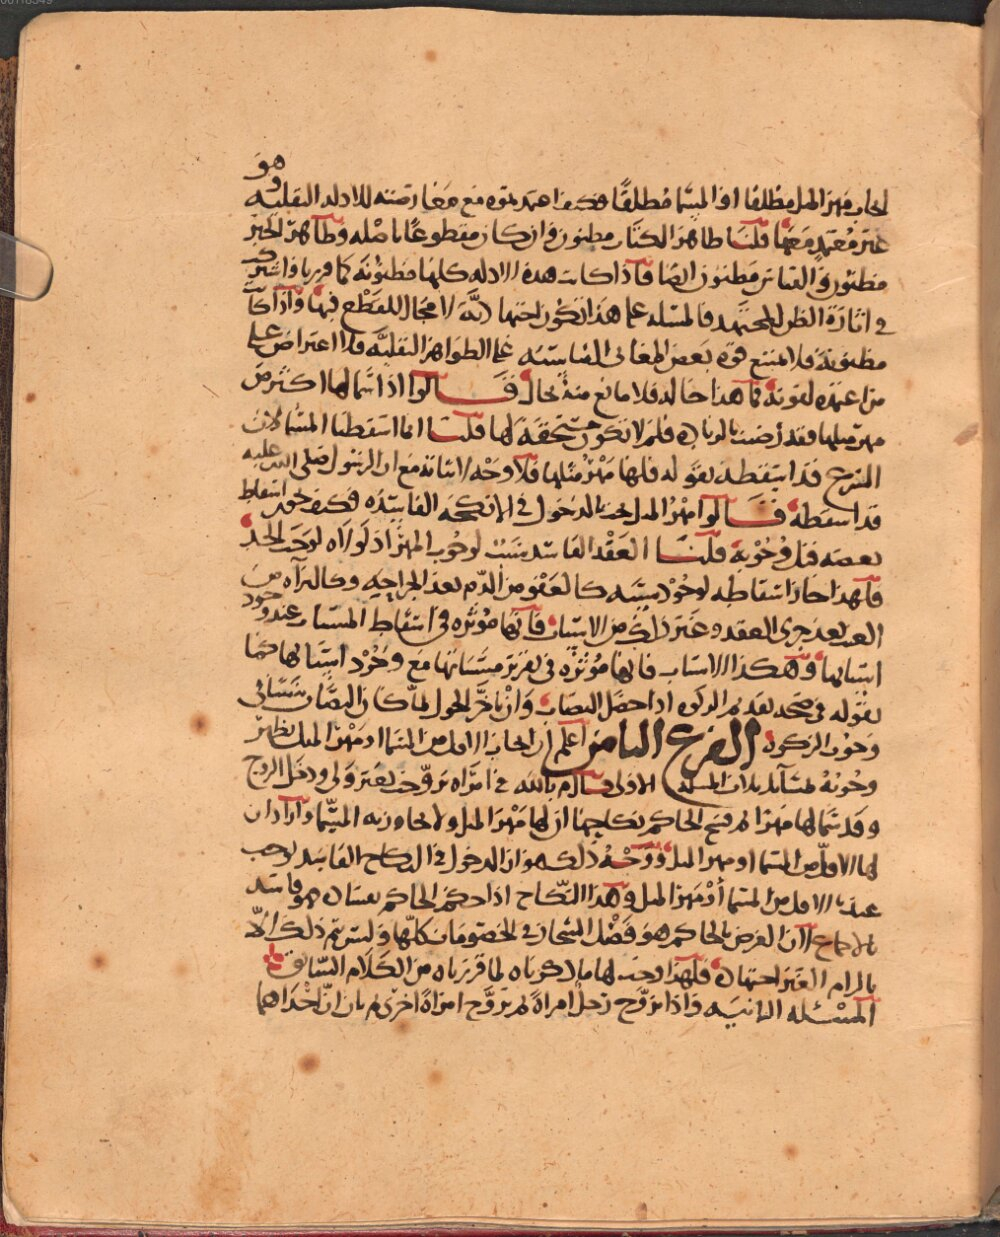 هو
لحاب مهر المثل مطلقا او المسما مطلقا فكيف اعتمدتموه مع معارضته للادله النقليه
غير معتمد معها قلنا ظاهر الكتاب مظنون وان كان مقطوعا باصله وظاهر الخبر
مظنون والقياس مظنون ايضا فاذا كانت هذه الادله كلها مظنونة كما قررنا واشتركت
في اثارة الظن للمجتهد فالمسله على هذا تكون اجتهادية لا مجال للقطع فيها واذا كانت
مظنونة فلا امتنع قوه بعض المعانى القياسيه على الظواهر النقليه فلا اعتراض على
من اعتمده لقوته فما هذا حاله فلا مانع منه بحال فقالوا اذا سمالها اكثر من
مهر مثلها فقد رضيت بالزياده فلم لا تكون مستحقة لها قلنا انما اسقطنا المسما لان
الشرع قد اسقطه بقوله فلها مهر مثلها فلا وجه لاثباته مع ان الرسول صلى الله عليه
قد اسقطه فقالوا مهر المثل يجب بالدخول في الانكحه الفاسده فكيف يجوز اسقاط
بعضه قبل وجوبه قلنا العقد الفاسد سبب لوجوب المهر اذ لولاه لوجب الحد
فلهذا جاز اسقاطه لوجود سببه كالعفو من الدم بعد الجراحه وكالبرآه من
العيب بعد جرى العقد وغير ذلك من الاسباب فانها موثره في اسقاط المسببات عند وجود
اسبابها وهكذا الاسباب فانها موثره في تقرير مسبباتها مع وجود اسبابها كما
نقوله في صحه تقديم الزكوه اذا حصل النصاب وان تاخر الحول لما كان النصاب سببا في
وجوب الزكوه الفرع الثامن اعلم ان ايجاب الاقل من المسما او مهر المثل يظهر
وجوبه لمسآيل ثلاث المسله الاولى قال م بالله في امراه تزوجت بغير ولى ودخل الزوج
وقد سمالها مهرا ثم فسخ الحاكم نكاحها ان لها مهر المثل ولا يجاوز به المسما واراد ان
لها الاقل من المسما او مهر المثل ووجه ذلك هو ان الدخول في النكاح الفاسد يوجب
عنده الاقل من المسما او مهر المثل وهذا النكاح اذا حكم الحاكم بفساده هو فاسد
بالاجماع لان الغرض بالحاكم هو فصل الشجار في الخصومات كلها وليس يتم ذلك الا
بالزام الغير اجتهاده فلهذا وجب لها ما ذكرناه لما قررناه من الكلام السابق
المسئله الثانيه واذا تزوج رجل امراة ثم تزوج امراة اخرى ثم بان ان احداهما